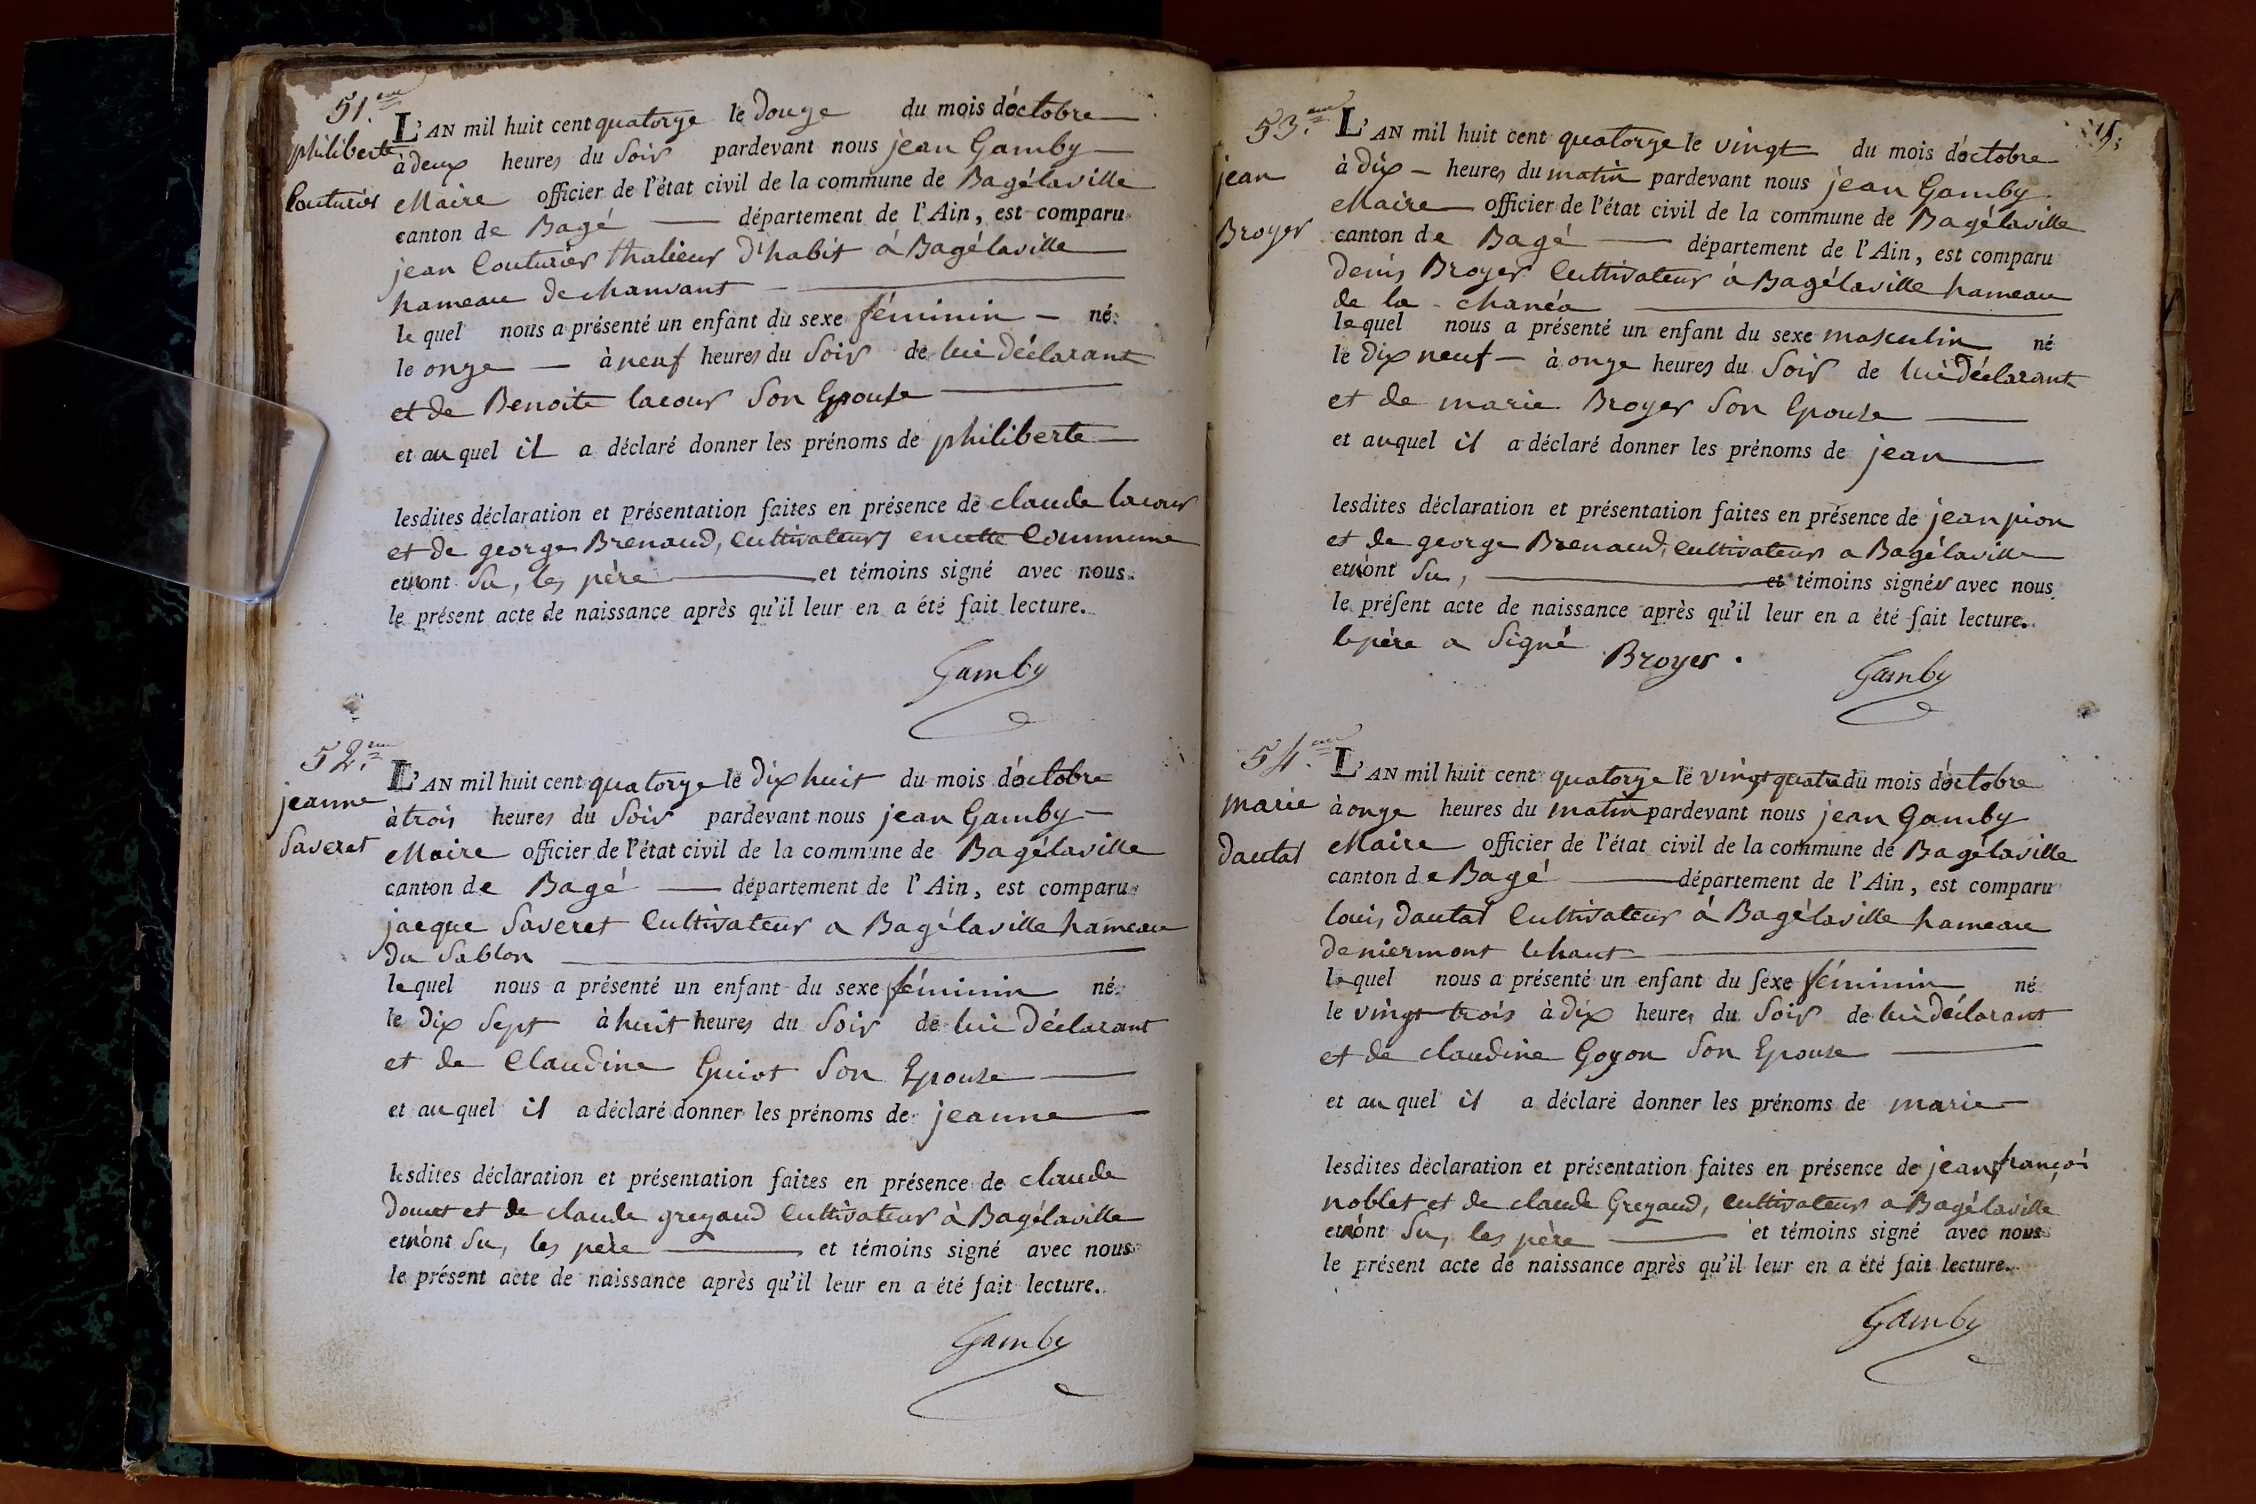 51.eme
philiberte
Couturier
L'AN mil huit cent quatorze le douze du mois d'octobre
à deux heures du Soir pardevant nous jean Gamby
Maire officier de l'état civil de la commune de Bagélaville
canton de Bagé département de l'Ain, est comparu
jean Couturier thalieur d'habit à Bagélaville
hameau de chanvant
le quel nous a présenté un enfant du sexe féminin né
le onze à neuf heures du Soir de lui déclarant
et de Benoite lacour Son Epouse
et au quel il a déclaré donner les prénoms de philiberte
lesdites déclaration et présentation faites en présence de claude lacour
et de george Brenaud, cultivateurs en cette Commune
et n'ont Su, les père et témoins signé avec nous
le présent acte de naissance après qu'il leur en a été fait lecture.
Gamby
52.eme
jeanne
Saveret
L'AN mil huit cent quatorze le dix huit du mois d'octobre
à trois heures du Soir pardevant nous jean Gamby
Maire officier de l'état civil de la commune de Bagélaville
canton de Bagé département de l'Ain, est comparu
jacque Saveret Cultivateur a Bagélaville hameau
du Sablon
le quel nous a présenté un enfant du sexe féminin né
le dix Sept à huit heures du Soir de lui déclarant
et de Claudine Guiot Son Epouse
et au quel il a déclaré donner les prénoms de jeanne
lesdites déclaration et présentation faites en présence de claude
Doucet et de claude gregaud Cultivateur à Bagélaville
et n'ont Su, les père et témoins signé avec nous
le présent acte de naissance après qu'il leur en a été fait lecture.
Gamby
53.eme
jean
Broyer
L'AN mil huit cent quatorze le vingt du mois d'octobre
à dix heures du matin pardevant nous jean Gamby
Maire officier de l'état civil de la commune de Bagélaville
canton de Bagé département de l'Ain, est comparu
denis Broyer Cultivateur à Bagélaville hameau
de la chanéa
le quel nous a présenté un enfant du sexe masculin né
le dix neuf à onze heures du Soir de lui déclarant
et de marie Broyer Son Epouse
et au quel il a déclaré donner les prénoms de jean
lesdites déclaration et présentation faites en présence de jean pion
et de george Brenaud, Cultivateur a Bagélaville
et n'ont Su, et témoins signér avec nous
le présent acte de naissance après qu'il leur en a été fait lecture.
le père a Signé Broyer.
Gamby
54.eme
marie
dautal
L'AN mil huit cent quatorze le vingt quatre du mois d'octobre
à onze heures du matin pardevant nous jean Gamby
Maire officier de l'état civil de la commune de Bagélaville
canton de Bagé département de l'Ain, est comparu
louis dautal Cultivateur à Bagélaville hameau
de niermont le haut
le quel nous a présenté un enfant du sexe féminin né
le vingt trois à dix heures du Soir de lui déclarant
et de claudine Goyon Son Epouse
et au quel il a déclaré donner les prénoms de marie
lesdites déclaration et présentation faites en présence de jean françois
noblet et de claude Gregaud, cultivateur a Bagélaville
et n'ont Su, les père et témoins signé avec nous
le présent acte de naissance après qu'il leur en a été fait lecture.
Gamby